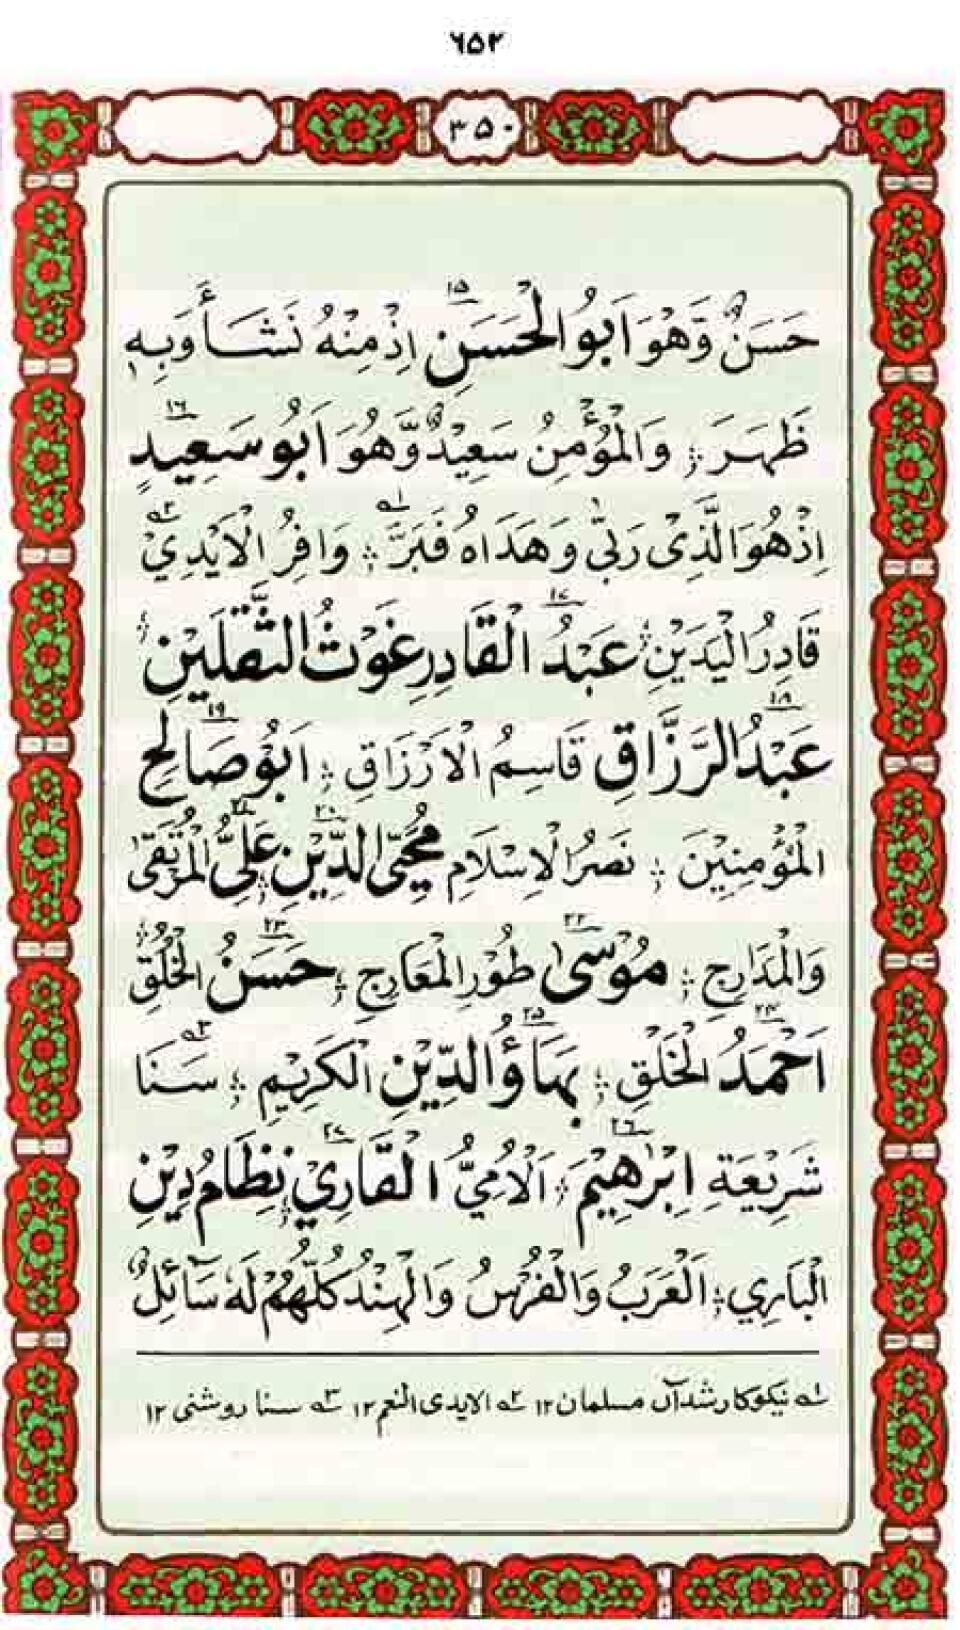 ۶۵۲
۳۵۰
حَسَنٌ وَّهُوَ اَبُو الْحَسَنِ ۱۵ اِذْ مِنْهُ نَشَأَ وَبِهٖ
ظَهَرَ ؛ وَالْمُؤْمِنُ سَعِيْدٌ وَّهُوَ اَبُوْ سَعِيْدٍ ۱۶
اِذْ هُوَ الَّذِیْ رَبّٰی وَهَدَاهُ فَبَرَّ ۱؎ ؛ وَافِرُ الْاَيْدِيْ ۲؎
قَادِرُ الْيَدَيْنِ ؛ عَبْدُ الْقَادِرِ ۱۷ غَوْثُ الثَّقَلَيْنِ ؛
عَبْدُ الرَّزَّاقِ ۱۸ قَاسِمُ الْاَرْزَاقِ ؛ اَبُوْ صَالِحِ ۱۹
الْمُؤْمِنِيْنَ ؛ نَصْرُ الْاِسْلَامِ مُحْیِ الدِّيْنِ ۲۰ ؛ عَلِيُّ ۲۱ الْمُرْتَقٰى
وَالْمَدَارِجِ ؛ مُوْسٰى ۲۲ طُوْرِ الْمَعَارِجِ ؛ حَسَنُ ۲۳ الْخُلُقِ ؛
اَحْمَدُ ۲۴ الْخَلْقِ ؛ بَهَاؤُ الدِّيْنِ ۲۵ الْكَرِيْمِ ؛ سَنَا ۳؎
شَرِيْعَةِ اِبْرٰهِيْمَ ۲۶ ؛ اَلْاُمِّيُّ الْقَارِيْ ۲۷ ؛ نِظَامُ دِيْنِ
الْبَارِي ؛ اَلْعَرَبُ وَالْفُرْسُ وَالْهِنْدُ كُلُّهُمْ لَهٗ سَآئِلٌ
۱؎ نیکوکار شد آں مسلمان ۱۲ ۲؎ الایدی النعم ۱۲ ۳؎ سنا روشنی ۱۲